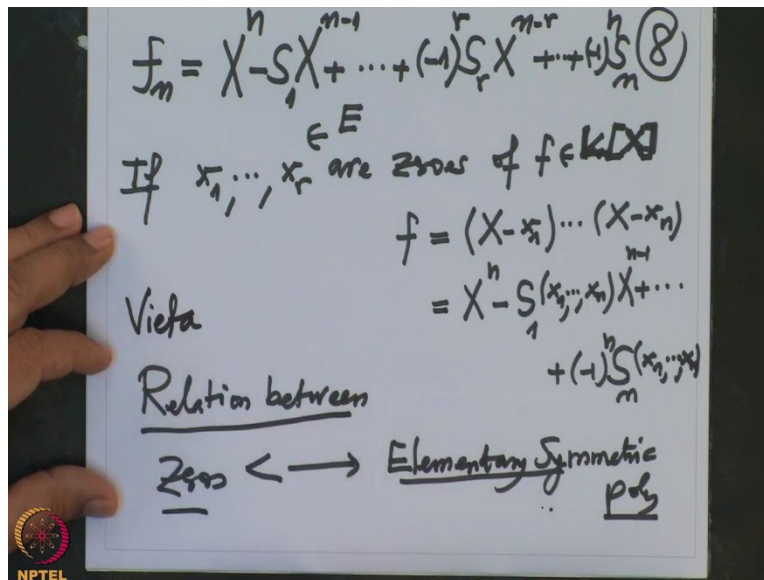 fₙ = Xⁿ - S₁Xⁿ⁻¹ + ⋯ + (-1)ʳ Sᵣ Xⁿ⁻ʳ + ⋯ + (-1)ⁿ Sₙ ⑧
If x₁, ⋯, xᵣ ∈ E are zeros of f ∈ K[X]
f = (X - x₁) ⋯ (X - xₙ)
= Xⁿ - S₁(x₁, ⋯, xₙ) Xⁿ⁻¹ + ⋯
Vieta
+ (-1)ⁿ Sₙ(x₁, ⋯, xₙ)
Relation between
Zeros <—> Elementary Symmetric
poly
NPTEL